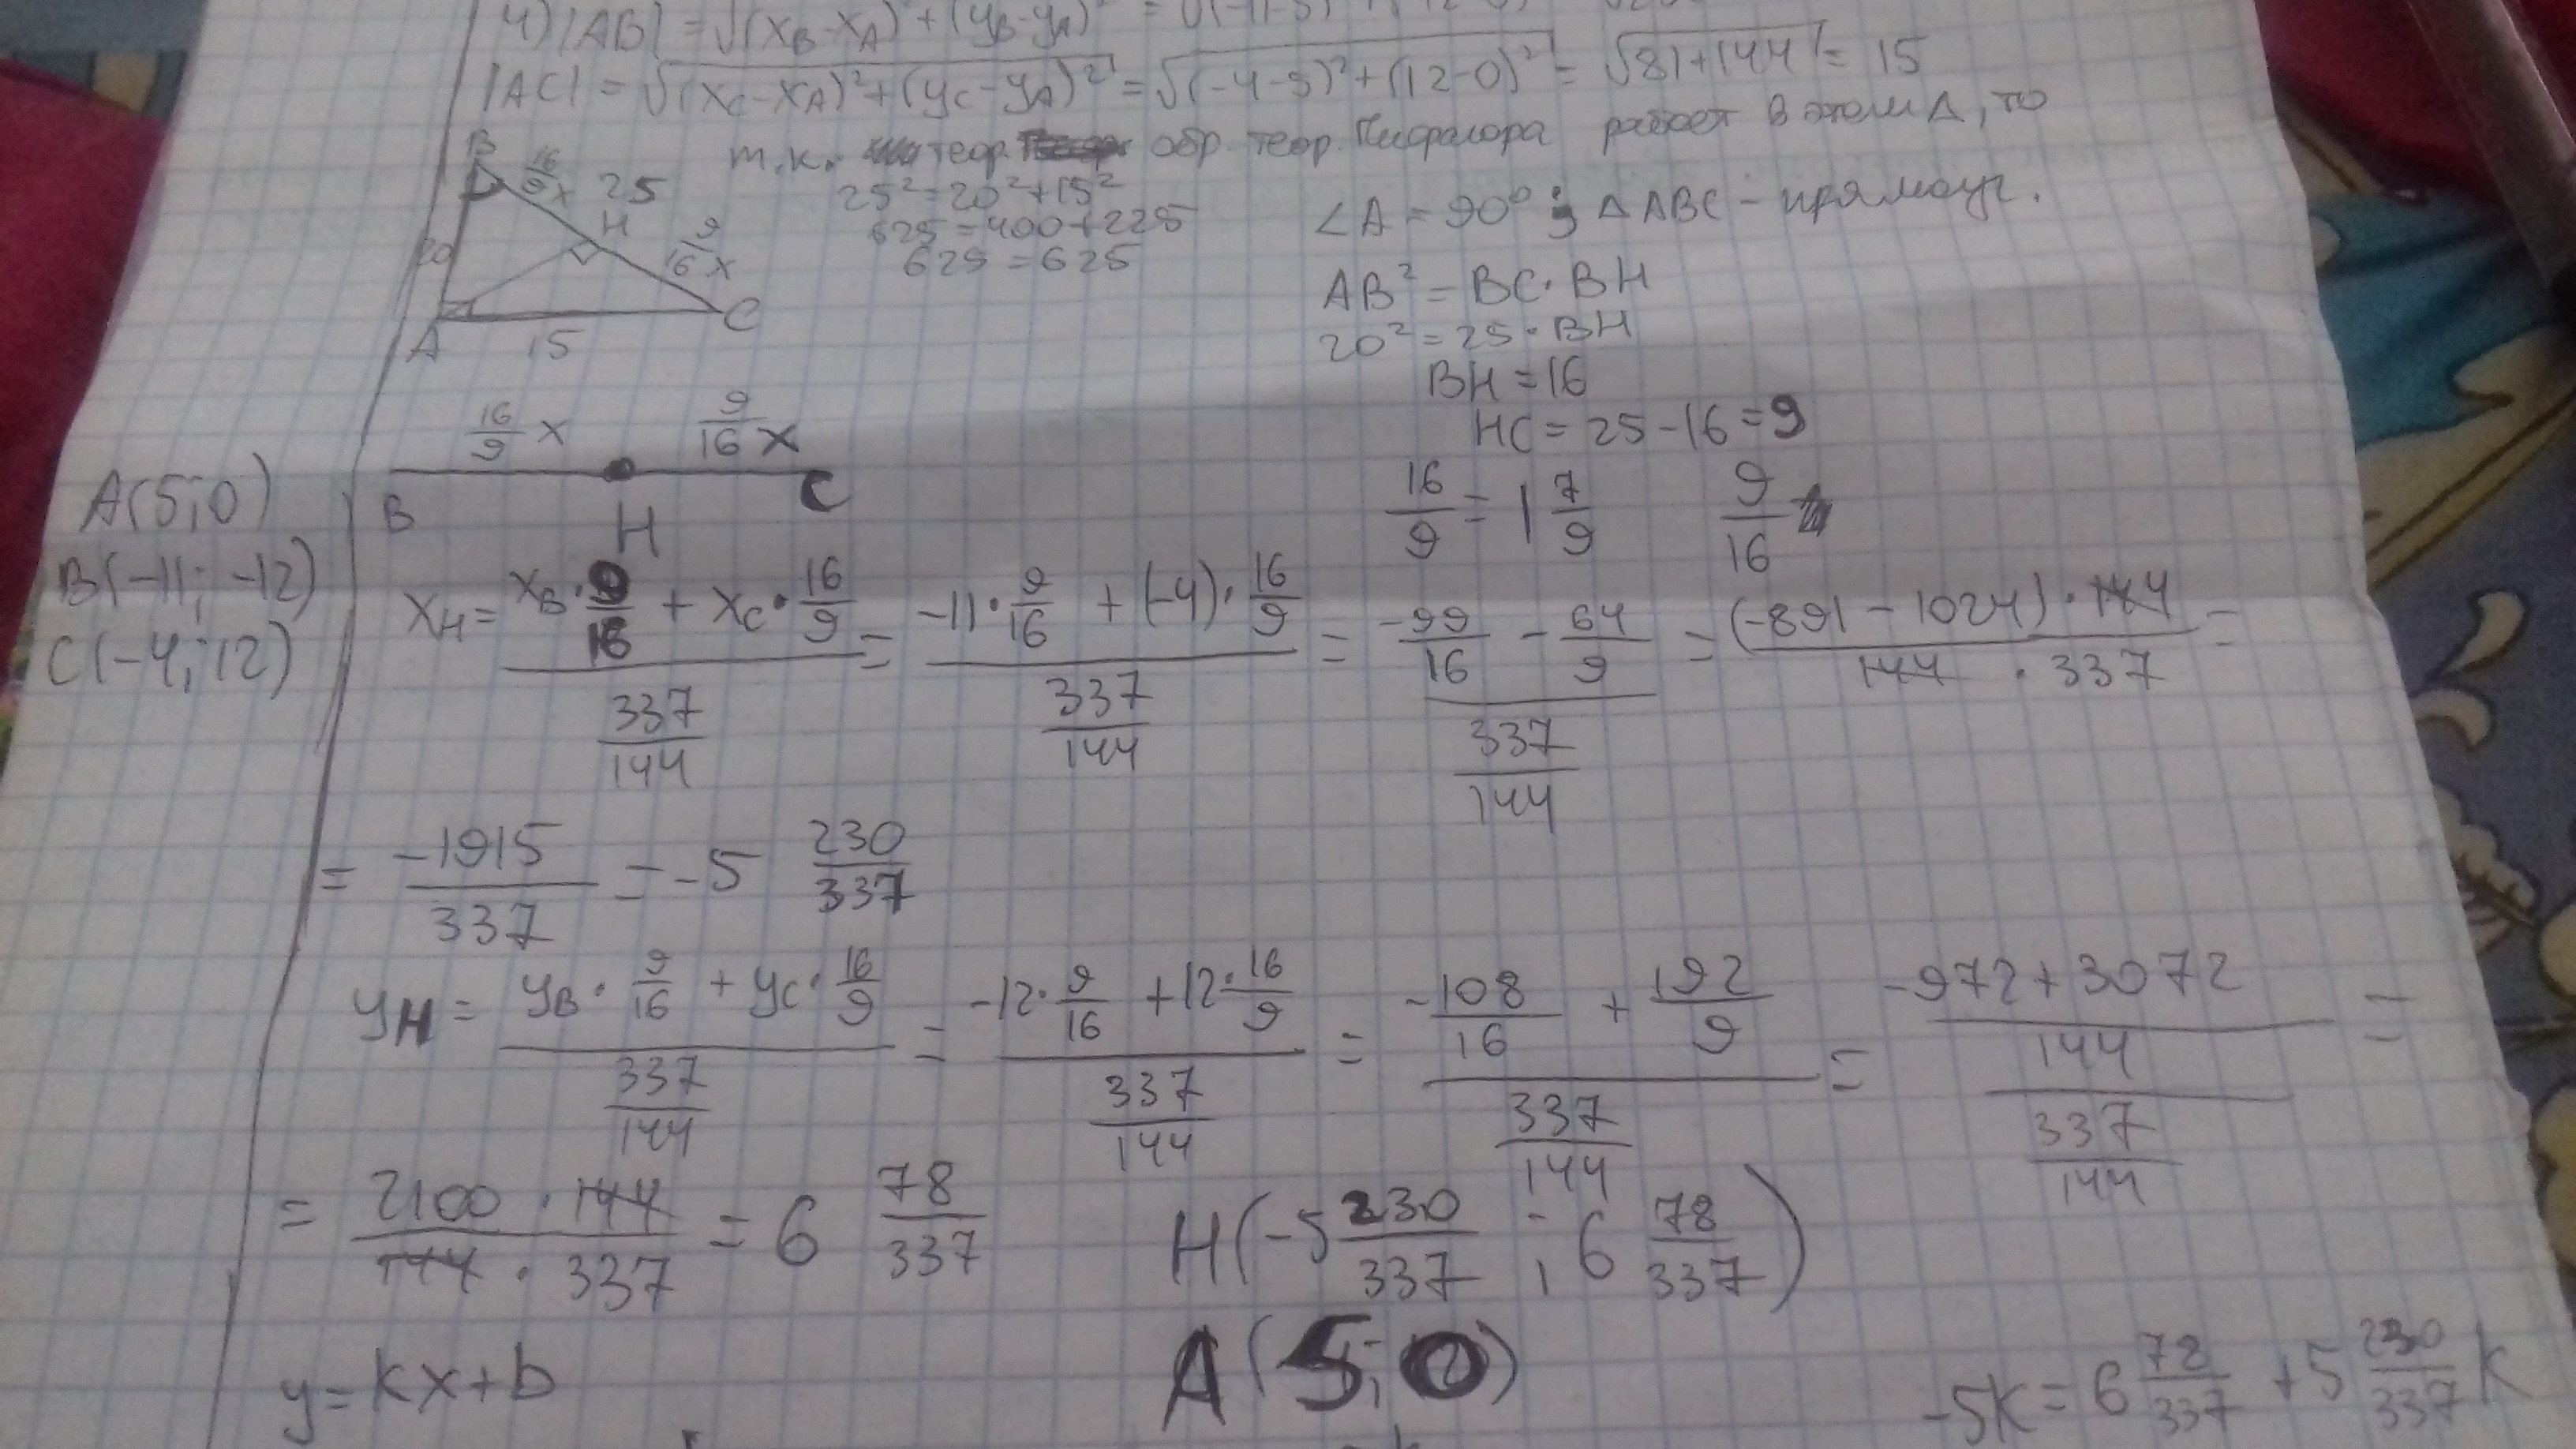 4) |AB| = √(x_B-x_A)²+(y_B-y_A)² =
|AC| = √(x_C-x_A)²+(y_C-y_A)² = √(-4-5)²+(12-0)² = √81+144 = 15
т.к. теор. обр. теор. Пифагора работ в этом Δ, то
B 16/9 x 25 H 9/16 x 20 A 15 C
25²=20²+15²
625=400+225
625=625
∠A = 90° ; ΔABC - прямоуг.
AB² = BC·BH
20² = 25·BH
BH = 16
HC = 25-16=9
16/9 x 9/16 x
B H C
16/9 = 1 7/9 9/16
A(5;0)
B(-11; -12)
C(-4; 12)
x_H = (x_B · 9/16 + x_C · 16/9) / (337/144) = (-11 · 9/16 + (-4) · 16/9) / (337/144) = (-99/16 - 64/9) / (337/144) = ((-891-1024)·144) / (144 · 337) =
= -1915/337 = -5 230/337
y_H = (y_B · 9/16 + y_C · 16/9) / (337/144) = (-12 · 9/16 + 12 · 16/9) / (337/144) = (-108/16 + 192/9) / (337/144) = ((-972+3072)/144) / (337/144) =
= (2100 · 144) / (144 · 337) = 6 78/337 H(-5 230/337 ; 6 78/337)
A(5; 0)
y = kx+b
-5k = 6 78/337 + 5 230/337 k